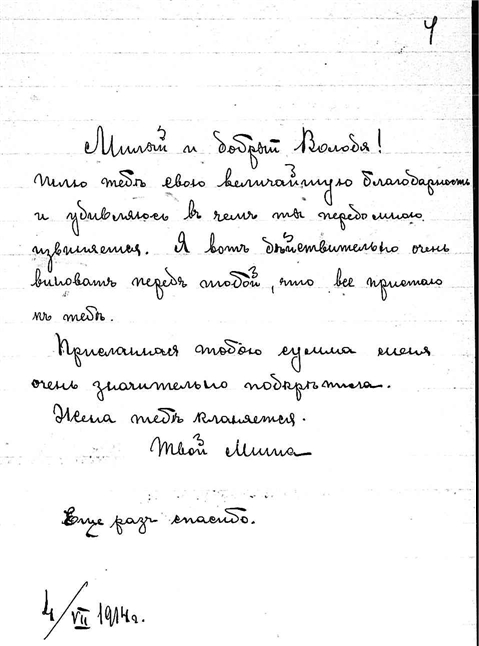 4
Милый и добрый Володя!
Шлю тебѣ свою величайшую благодарность
и удивляюсь въ чемъ ты передо мною
извиняешся. Я вотъ дѣйствительно очень
виноватъ передъ тобой, что все пристаю
къ тебѣ.
Присланная тобою сумма меня
очень значительно подкрѣпила.
Жена тебѣ кланяется.
Твой Миша
Еще разъ спасибо.
4/VII 1914г.